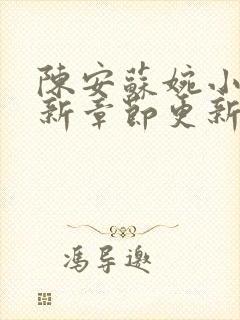 陳安蘇婉小
新章節更新
馮导邀